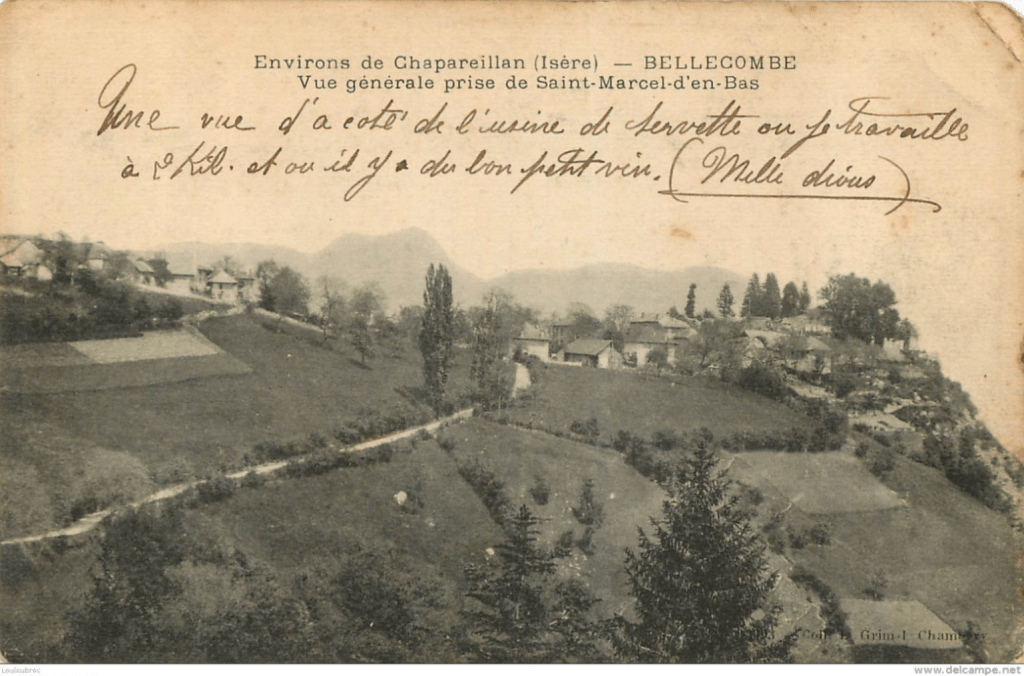 Environs de Chapareillan (Isère) — BELLECOMBE
Vue générale prise de Saint-Marcel-d'en-Bas
Une vue d'a coté de l'usine de Servette ou je travaille
à 2 Kil. et ou il y a du bon petit vin. (Mille dious)
Coll. L. Grimal Chambéry
Louloubrec
www.delcampe.net